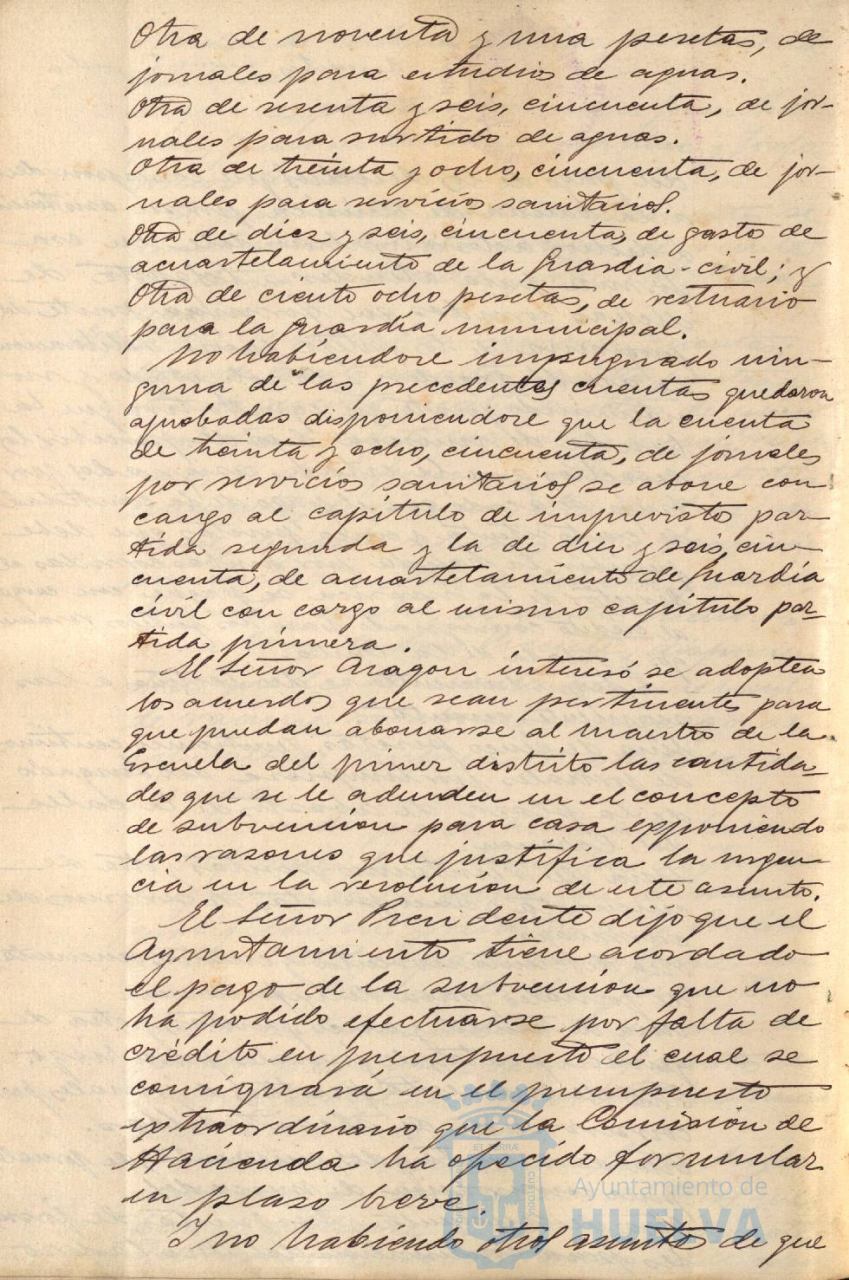 Otra de noventa y una pesetas, de
jornales para estudios de aguas.
Otra de sesenta y seis, cincuenta, de jor-
nales para surtido de aguas.
Otra de treinta y ocho, cincuenta, de jor-
nales para servicios sanitarios.
Otra de diez y seis, cincuenta, de gasto de
acuartelamiento de la Guardia-civil; y
Otra de ciento ocho pesetas, de vestuario
para la guardia municipal.
No habiéndose impugnado nin-
guna de las precedentes cuentas quedaron
aprobadas disponiendose que la cuenta
de treinta y ocho, cincuenta, de jornales
por servicios sanitarios se abone con
cargo al capítulo de imprevisto par-
tida segunda y la de diez y seis, cin-
cuenta, de acuartelamiento de Guardia
civil con cargo al mismo capítulo par-
tida primera.
El Señor Aragon interesó se adopten
los acuerdos que sean pertinentes para
que puedan abonarse al maestro de la
Escuela del primer distrito las cantida-
des que se le adeuden en el concepto
de subvencion para casa exponiendo
las razones que justifica la urgen-
cia en la resolucion de este asunto.
El Señor Presidente dijo que el
Ayuntamiento tiene acordado
el pago de la subvencion que no
ha podido efectuarse por falta de
crédito en presupuesto el cual se
consignará en el presupuesto
extraordinario que la Comisión de
Hacienda ha ofrecido formular
en plazo breve.
Y no habiendo otros asuntos de que
Ayuntamiento de
HUELVA